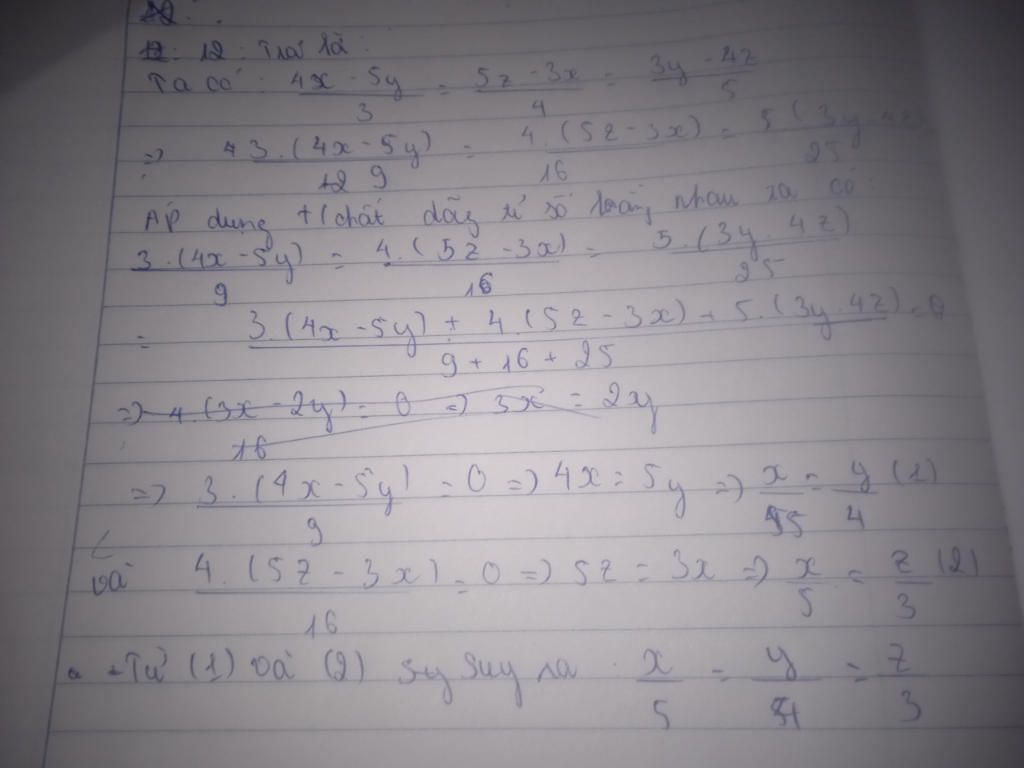 12: Trả lời:
Ta có: (4x - 5y)/3 = (5z - 3x)/4 = (3y - 4z)/5
=> 3.(4x - 5y)/9 = 4.(5z - 3x)/16 = 5(3y 4z)/25
Áp dụng t/chất dãy tỉ số bằng nhau ta có:
3.(4x - 5y)/9 = 4.(5z - 3x)/16 = 5.(3y. 4z)/25
= (3.(4x - 5y) + 4.(5z - 3x) + 5.(3y. 4z))/(9 + 16 + 25) = 0
=> 4.(3x - 2y)/16 = 0 => 3x = 2y
=> 3.(4x - 5y)/9 = 0 => 4x = 5y => x/5 = y/4 (1)
và 4.(5z - 3x)/16 = 0 => 5z = 3x => x/5 = z/3 (2)
Từ (1) và (2) suy ra x/5 = y/4 = z/3